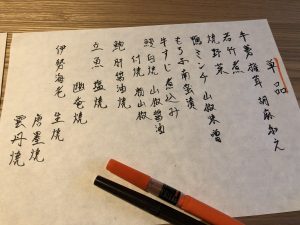 単品
牛蒡 椎茸 胡麻和え
若竹煮
焼野菜
鴨ミンチ 山椒味噌
もろこ南蛮漬
牛すじ煮込み
鰻白焼 山椒醤油
付焼 粉山椒
鮑肝醤油焼
立魚 塩焼
幽庵焼
伊勢海老 生焼
唐墨焼
雲丹焼